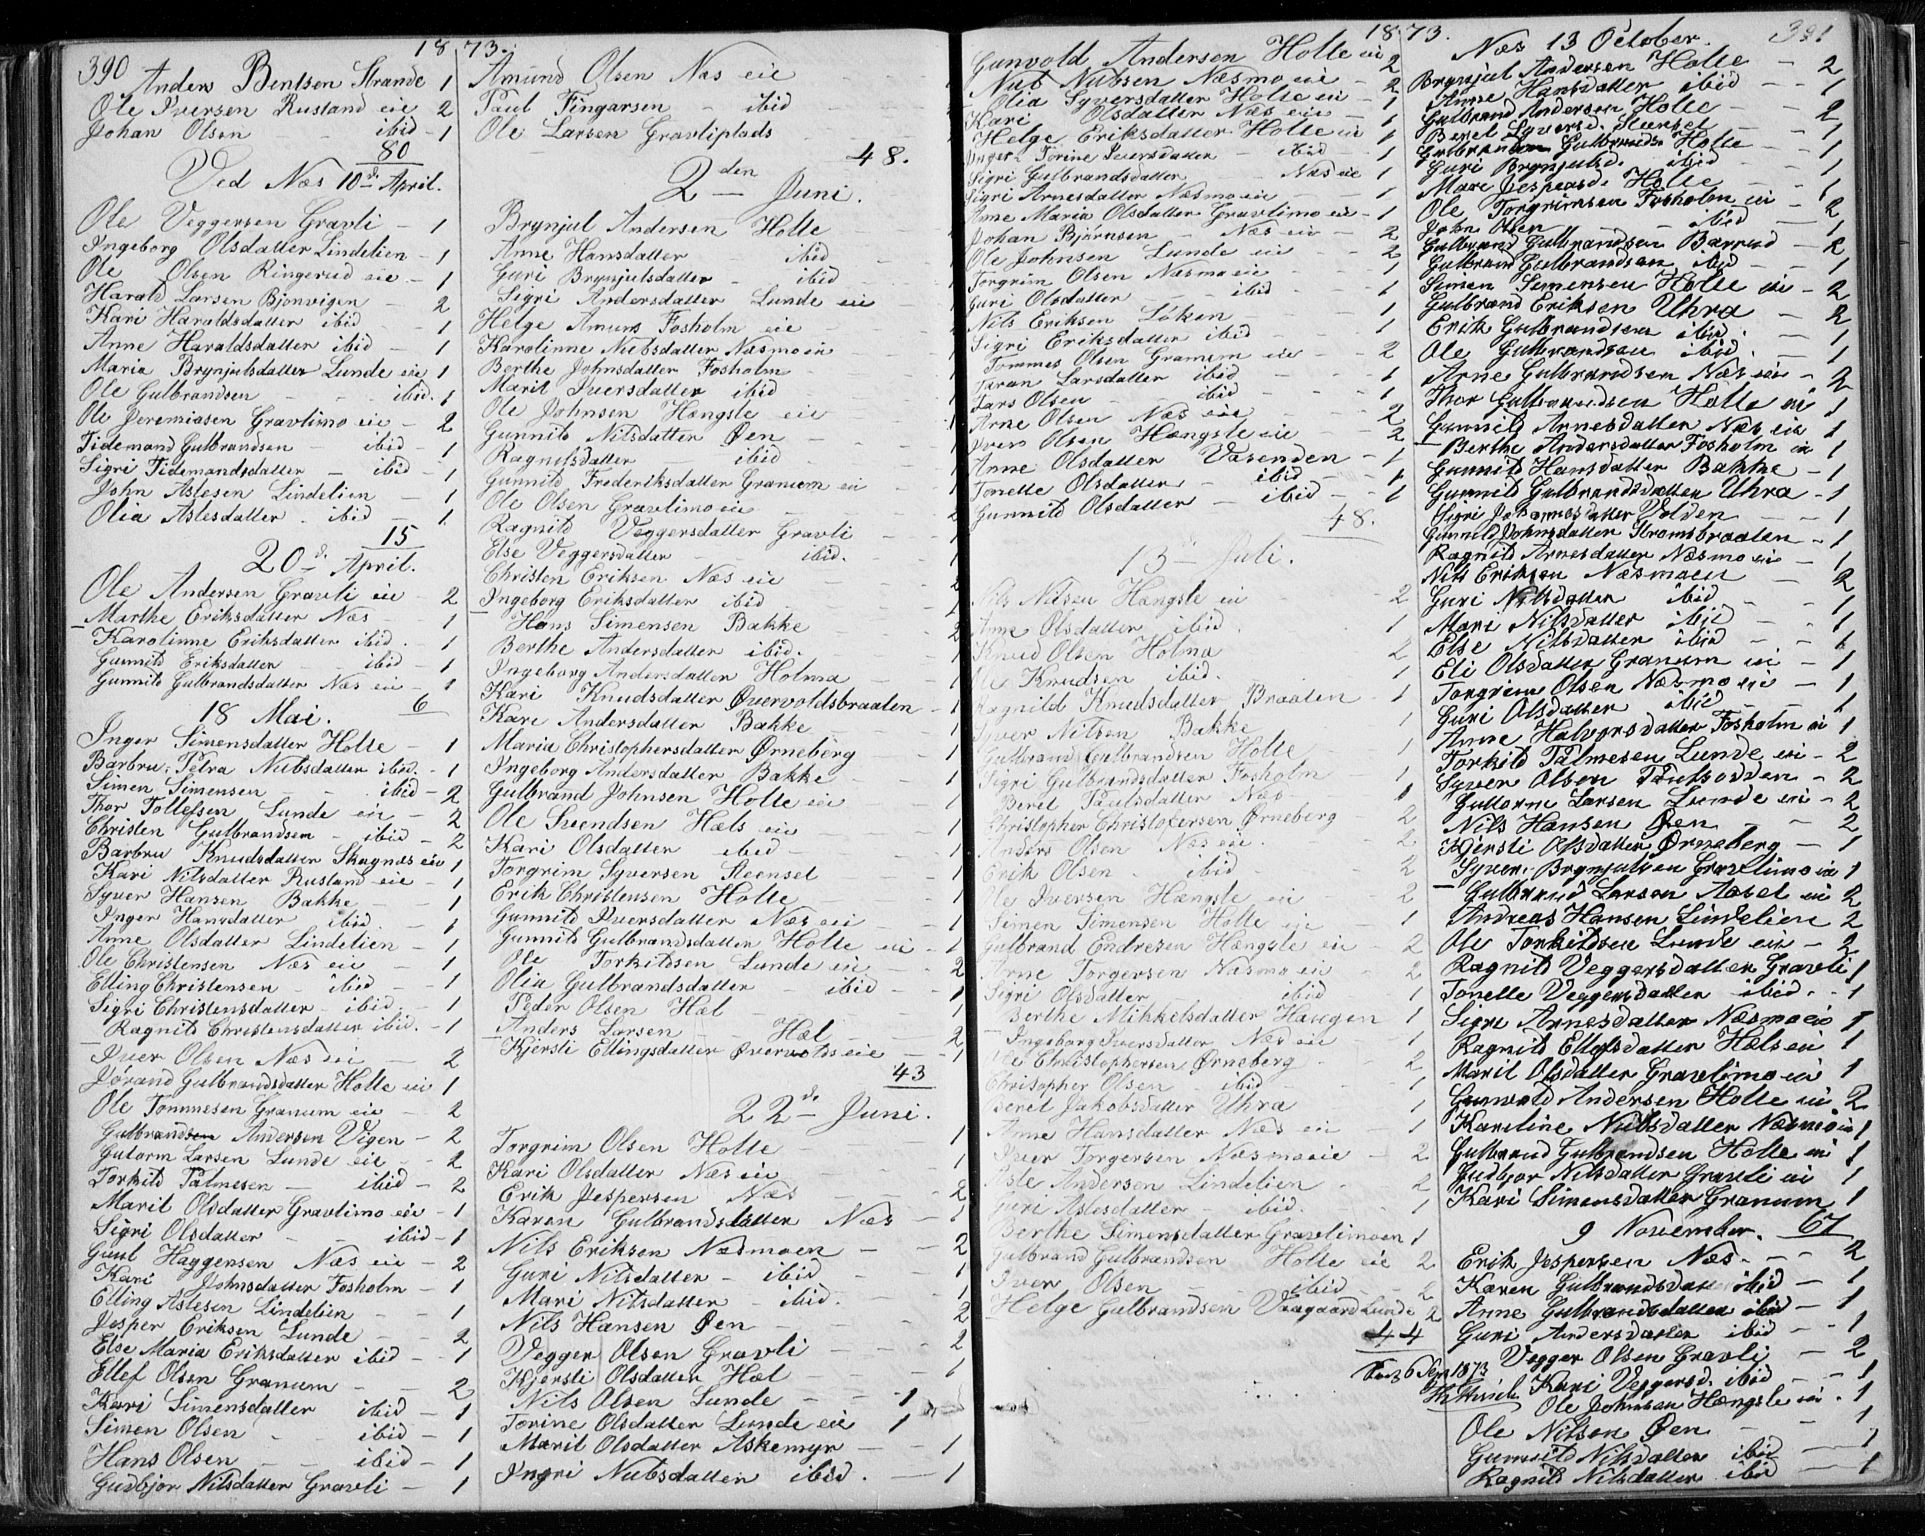 390
1873.
Anders Bentsen Strande 1
Ole Iversen Rustand eie 2
Johan Olsen ibid - 1
80
Ved Næs 10de April.
Ole Veggersen Gravli - 1
Ingeborg Olsdatter Lindelien - 1
Ole Olsen Ringerud eie - 1
Harald Larsen Bjonvigen - 2
Kari Haraldsdatter ibid - 1
Anne Haraldsdatter ibid - 1
Maria Brynjulsdatter Lunde eie 1
Ole Gulbrandsen - - ibid. 1
Ole Jeremiasen Gravlimo eie - 2
Tidemand Gulbrandsen ibid - 1
Sigri Tidemandsdatter - ibid - 1
John Aslesen Lindelien - 1
Olia Aslesdatter. ibid - 1.
15
20de April.
Ole Andersen Gravli eie - 2
Marthe Eriksdatter Næs - 1
Karolinne Eriksdatter ibid. 1
Gunnild Eriksdatter - ibid - 1
Gunnild Gulbrandsdatter Næs eie - 1
18 Mai. 6
Inger Simensdatter Holte - 1
Barbru Petra Nubsdatter ibid. - 1
Simen Simensen - - ibid - 2
Thor Tollefsen Lunde eie - 2
Christen Gulbrandsen - ibid - 2
Barbru Knudsdatter Skagnæs eie 1
Kari Nilsdatter Rustand eie - 1
Syver Hansen Bakke - - 1
Inger Hansdatter ibid. - 1
Anne Olsdatter Lindelien - 1
Ole Christensen Næs eie - 1
Elling Christensen - ibid - - 1
Sigri Christensdatter - ibid. - 1
Ragnild Christensdatter ibid. - 1
Iver Olsen Næs eie - 2
Jørand Gulbrandsdatter Holte eie 1
Ole Tommesen Granum eie - 2
Gulbrand Andersen Vigen - 2
Gutorm Larsen Lunde eie - 2
Torkild Palmesen - ibid - 2
Marit Olsdatter Gravlimo eie - 1
Sigri Olsdatter - - ibid - 1
Haggensen Næs eie - 2
Kari Johnsdatter Fosholm - 1
Elling Aslesen Lindelien 1
Jesper Eriksen Lunde - - 2
Else Maria Eriksdatter ibid - 1
Ellef Olsen Granum - - 2
Kari Simensdatter ibid - 1
Simen Olsen - - ibid - 1
Hans Olsen - - ibid - 1
Gudbjor Nilsdatter Gravli - 1
Amund Olsen Næs eie
Paul Fingarsen - ibid
Ole Larsen Gravliplads
48.
2den Juni.
Brynjul Andersen Holte
Anne Hansdatter ibid
Guri Brynjulsdatter - ibid
Sigri Andersdatter Lunde eie
Helge Amuns Fosholm eie
Karolinne Nubsdatter Næsmoen
Berthe Johnsdatter Fosholm
Marit Iversdatter ibid
Ole Johnsen Hængsle eie
Gunnild Nilsdatter Øen
Ragnilsdatter ibid
Gunnild Frederiksdatter Granum eie
Ole Olsen Gravlimo eie
Ragnild Veggersdatter Gravli - 1
Else Veggersdatter ibid. 1
Christen Eriksen Næs eie - 2
Ingeborg Eriksdatter ibid - 1
Hans Simensen Bakke 2
Berthe Andersdatter ibid. - 1
Ingeborg Andersdatter Holma - 1
Kari Knudsdatter Øvervoldsbraaten - 1
Kari Andersdatter Bakke - 1
Maria Christophersdatter Ørneberg - 1
Ingeborg Andersdatter Bakke - 1
Gulbrand Johnsen Holte eie 1
Ole Svendsen Hæls eie 1
Kari Olsdatter ibid - 1
Torgrim Syversen Steensel 1
Erik Christensen Holte 1
Gunnild Iversdatter Næs eie 1
Gunnild Gulbrandsdatter Holte eie - 1
Ole Torkildsen Lunde eie - 2
Olia Gulbrandsdatter - ibid - 1
Peder Olsen Hæl - 1
Anders Larsen Hæl - 2
Kjersti Ellingsdatter Øvervolds eie - 1
43
22de Juni.
Torgrim Olsen Holte - 1
Kari Olsdatter Næs eie 1
Erik Jespersen Næs - 2
Karen Gulbrandsdatter Næs - 1
Nils Eriksen Næsmoen - - 2
Guri Nilsdatter - ibid - 1
Mari Nilsdatter ibid. - 1
Nils Hansen Øen - - - 2
Vegger Olsen Gravli - - 2
Kjersti Olsdatter Hæl - - 1
Nils Olsen Lunde - - 1
Torine Olsdatter Lunde eie 1
Marit Olsdatter Askemyr - - 1
Ingri Nubsdatter ibid. - 1
1873.
Gunvold Andersen Holte eie 2
Nub Nubsen Næsmo eie - 2
Olia Syversdatter Holte eie - 1
Kari Olsdatter Næs eie - 1
Helge Eriksdatter Holte eie 1
Inger Torine Iversdatter - ibid - 1
Sigri Gulbrandsdatter Næs eie 1
Sigri Arnesdatter Næsmo eie 1
Anne Maria Olsdatter Gravlimo eie - 1
Johan Bjørnsen - Næs eie - 2
Ole Johnsen Lunde eie - 2
Torgrim Olsen Næsmo eie - 1
Guri Olsdatter - - ibid - - 1
Nils Eriksen Løken - - 1
Sigri Eriksdatter ibid - - 1
Tommes Olsen Granum eie - - 2
Taran Larsdatter ibid - - 1
Lars Olsen - ibid - - 1
Arne Olsen Næs eie - 2
Iver Olsen Hængsle eie - 2
Anne Olsdatter Vasenden - 1
Tonette Olsdatter - ibid - - 1
Gunnild Olsdatter - ibid - - 1
48.
13de Juli.
Nils Nilsen Hængsle eie 2
Anne Olsdatter ibid. 1
Knud Olsen Holma 2
Ole Knudsen ibid. 1
Ragnild Knudsdatter Braaten 1
Syver Nilsen Bakke 1
Gulbrand Gulbrandsen Holte 1
Sigri Gulbrandsdatter Fosholm 1
Beret Paulsdatter Næs 1
Christopher Christofersen Ørneberg - 2
Anders Olsen Næs eie. 2
Erik Olsen - ibid. 2
Ole Iversen Hængsle eie 2
Simen Simensen Holte eie 1
Gulbrand Endresen Hængsle eie 2
Arne Torgersen Næsmo eie 2
Sigri Olsdatter ibid 1
Berthe Mikkelsdatter Haugen 1
Ingeborg Iversdatter Næs eie - 1
Ole Christophersen Ørneberg - 2
Christopher Olsen - ibid - 1
Beret Jakobsdatter Uhra 1
Anne Hansdatter Næs eie - 1
Iver Torgersen Næsmoeie - 2
Asle Andersen Lindelien - 2
Guri Aslesdatter - ibid. 1
Berthe Simensdatter Gravlimoen 1
Gulbrand Gulbrandsen Holte eie 2
Iver Olsen - ibid - 2
Helge Gulbrandsen Vaagaard Lunde 2
44
1873
Næs 13 October. 391
Brynjul Andersen Holte - 2
Anne Hansdatter ibid - - 1
Gulbrand Andersen Holte - - 2
Beret Syversd. Steensel - - 1
Gulbrand Gulbrands. Holte - - 1
Guri Brynjulsd. ibid - - 1
Mari Jespersd. Holte - - 1
Ole Torgrimsen Fosholm eie - 2
John Olsen - - ibid - 1
Gulbrand Gulbrandsen Barrud - 2
Gulbrand Gulbrandsen ibid - - 1
Simen Simensen Holte eie - 2
Gulbrand Eriksen Uhra - 2
Erik Gulbrandsen ibid. - 1
Ole Gulbrandsen ibid. - 1
Arne Gulbrandsen Næs eie - 2
Thor Gulbrandsen Holte eie 1
Gunnild Arnesdatter Næs eie 1
Berthe Andersdatter Fosholm eie 1
Gunnild Hansdatter Bakke - 1
Gunnild Gulbrandsdatter Uhra - 1
Sigri Johannesdatter Volden - - 1
Gunnild Johnsdatter Stromsbraaten - 1
Ragnild Arnesdatter Næsmo eie - 1
Nils Eriksen Næsmoen - 2
Guri Nilsdatter ibid - - 1
Mari Nilsdatter ibid - - 1
Else Nilsdatter ibid - - 1
Eli Olsdatter Granum eie - 1
Torgrim Olsen Næsmo eie - 1
Guri Olsdatter ibid - - 1
Anne Halvorsdatter Fosholm eie 1
Torkild Palmesen Lunde eie - 2
Syver Olsen - 2
Guttorm Larsen Lunde eie - 2
Nils Hansen Øen - - 2
Kjersti Olsdatter Ørneberg - 1
Syver Brynjulsen Gravlimo eie 1
Gulbrand Larsen Aasel eie 2
Andreas Hansen Lindelien 2
Ole Torkildsen Lunde eie - 2
Ragnild Veggersdatter Gravli 1
Tonette Veggersdatter ibid. - 1
Sigri Arnesdatter Næsmoeie 1
Ragnild Ellefsdatter Hælseie 1
Marit Olsdatter Gravlimo eie 1
Gunvold Andersen Holte eie 2
Karoline Nubsdatter Næsmoen 1
Gulbrand Gulbrandsen Holte eie 1
Gudbjor Nilsdatter Gravli eie 1
Kari Simensdatter Granum 1
9 November. 67
Erik Jespersen Næs. - - 2
Karen Gulbrandsdatter ibid - 1
Anne Gulbrandsdatter ibid - 1
Guri Andersdatter ibid - - 1
Vegger Olsen Gravli - 2
Kari Veggersd. ibid - - 1
Ole Johnsen Hængsle eie. 1
Ole Nilsen Øen - 1
Gunnild Nilsdatter ibid - 1
Ragnild Nilsdatter ibid - 1